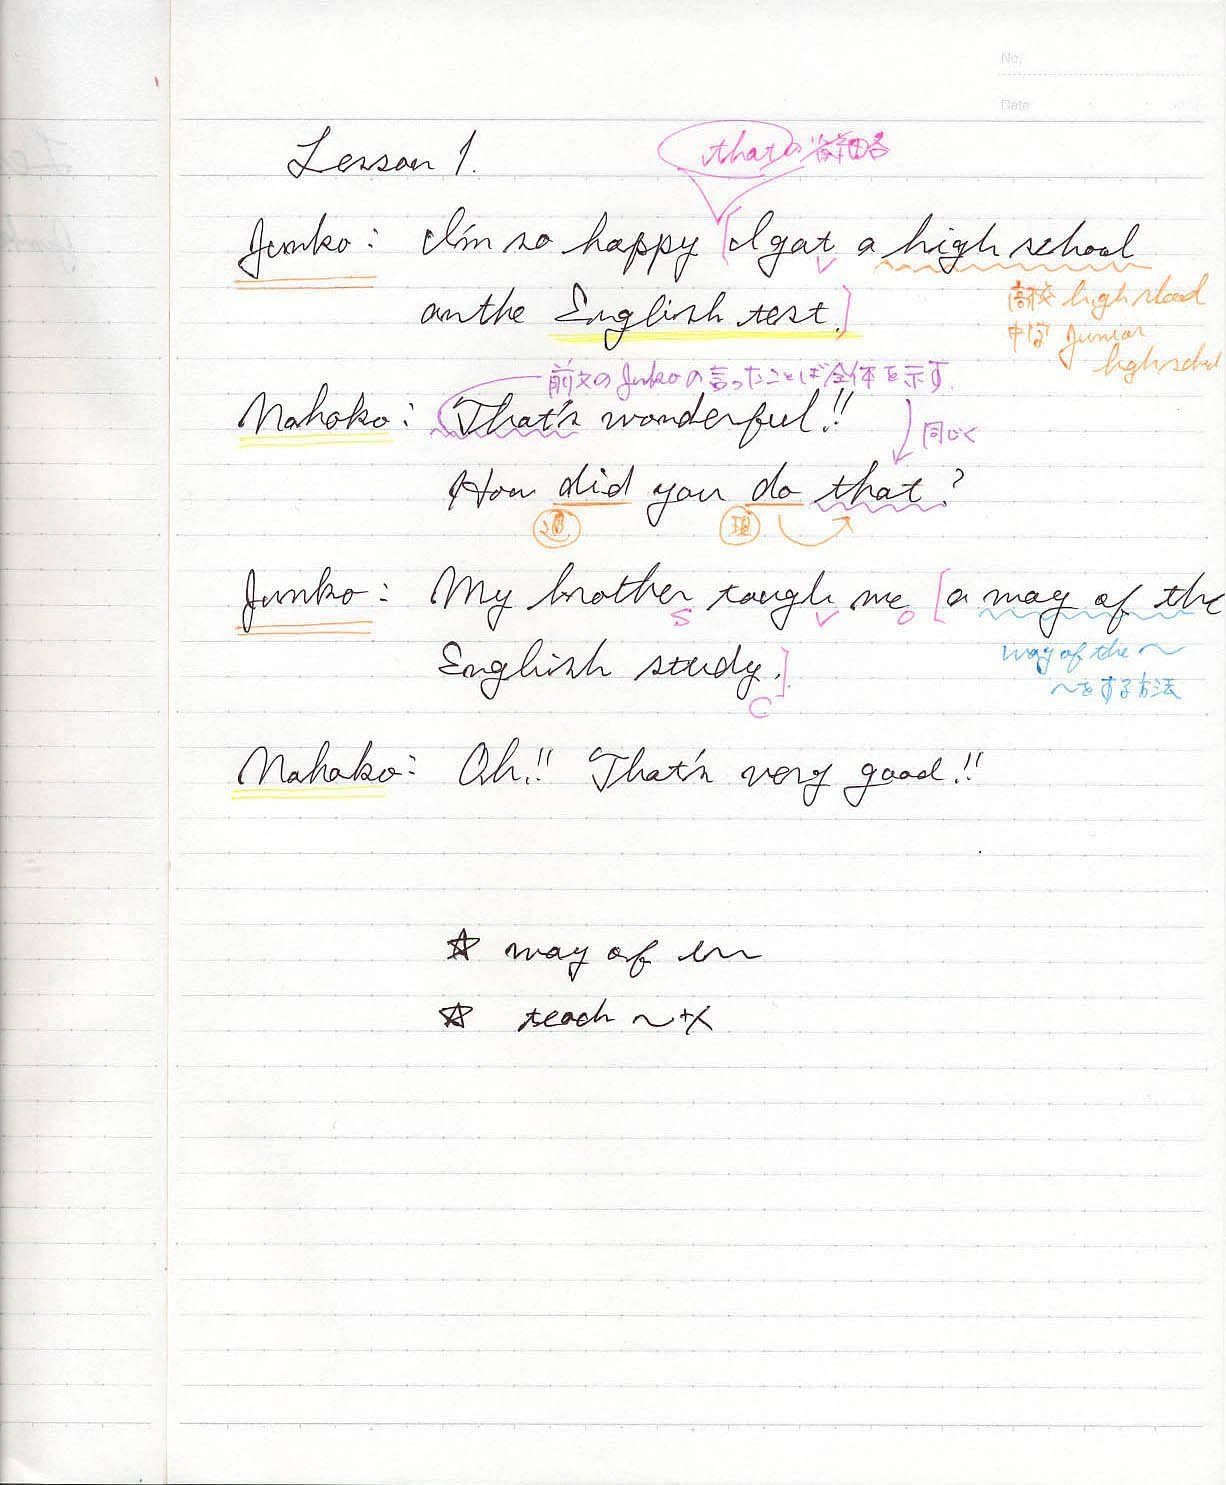 No.
Date
Lesson 1.
thatの省略
Junko: I'm so happy [I got a high school
v
on the English test.]
高校 high shool
中学 Junior
high school
前文のJunkoの言ったことば全体を示す.
Nahoko: That's wonderful!!
同じく
How did you do that?
過 現
Junko: My brother tough me [a way of the
S V O
English study.]
C
way of the ~
~をする方法
Nahoko: Oh!! That's very good!!
☆ way of
☆ teach ~+